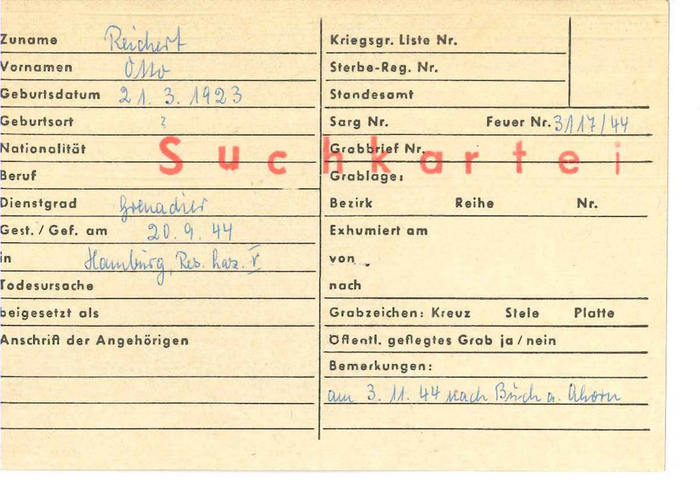 Zuname Reichert
Vornamen Otto
Geburtsdatum 21. 3. 1923
Geburtsort ?
Nationalität
Beruf
Dienstgrad Grenadier
Gest. / Gef. am 20. 9. 44
in Hamburg, Res. Laz. V
Todesursache
beigesetzt als
Anschrift der Angehörigen
Suchkartei
Kriegsgr. Liste Nr.
Sterbe-Reg. Nr.
Standesamt
Sarg Nr. Feuer Nr. 3117/44
Grabbrief Nr.
Grablage:
Bezirk Reihe Nr.
Exhumiert am
von
nach
Grabzeichen: Kreuz Stele Platte
Öffentl. gepflegtes Grab ja / nein
Bemerkungen:
am 3. 11. 44 nach Buch a. Ahorn